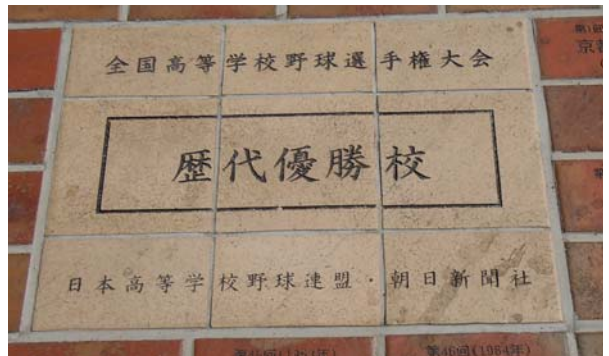 全国高等学校野球選手権大会
歴代優勝校
日本高等学校野球連盟・朝日新聞社
第46回(1964年)